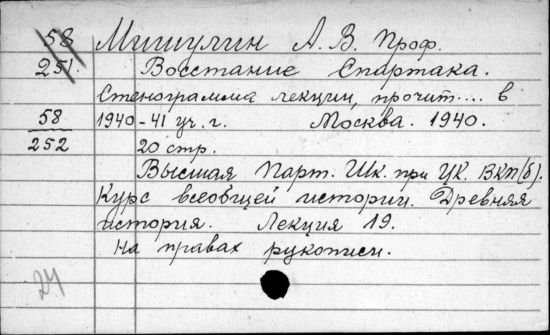 58 Мишулин А. В. Проф.
251. Восстание Спартака.
Стенограмма лекции, прочит.... в
58 1940-41 уч. г. Москва. 1940.
252 20 стр.
Высшая Парт. Шк. при ЦК. ВКП(б).
Курс всеобщей истории. Древняя
история. Лекция 19.
На правах рукописи.
24